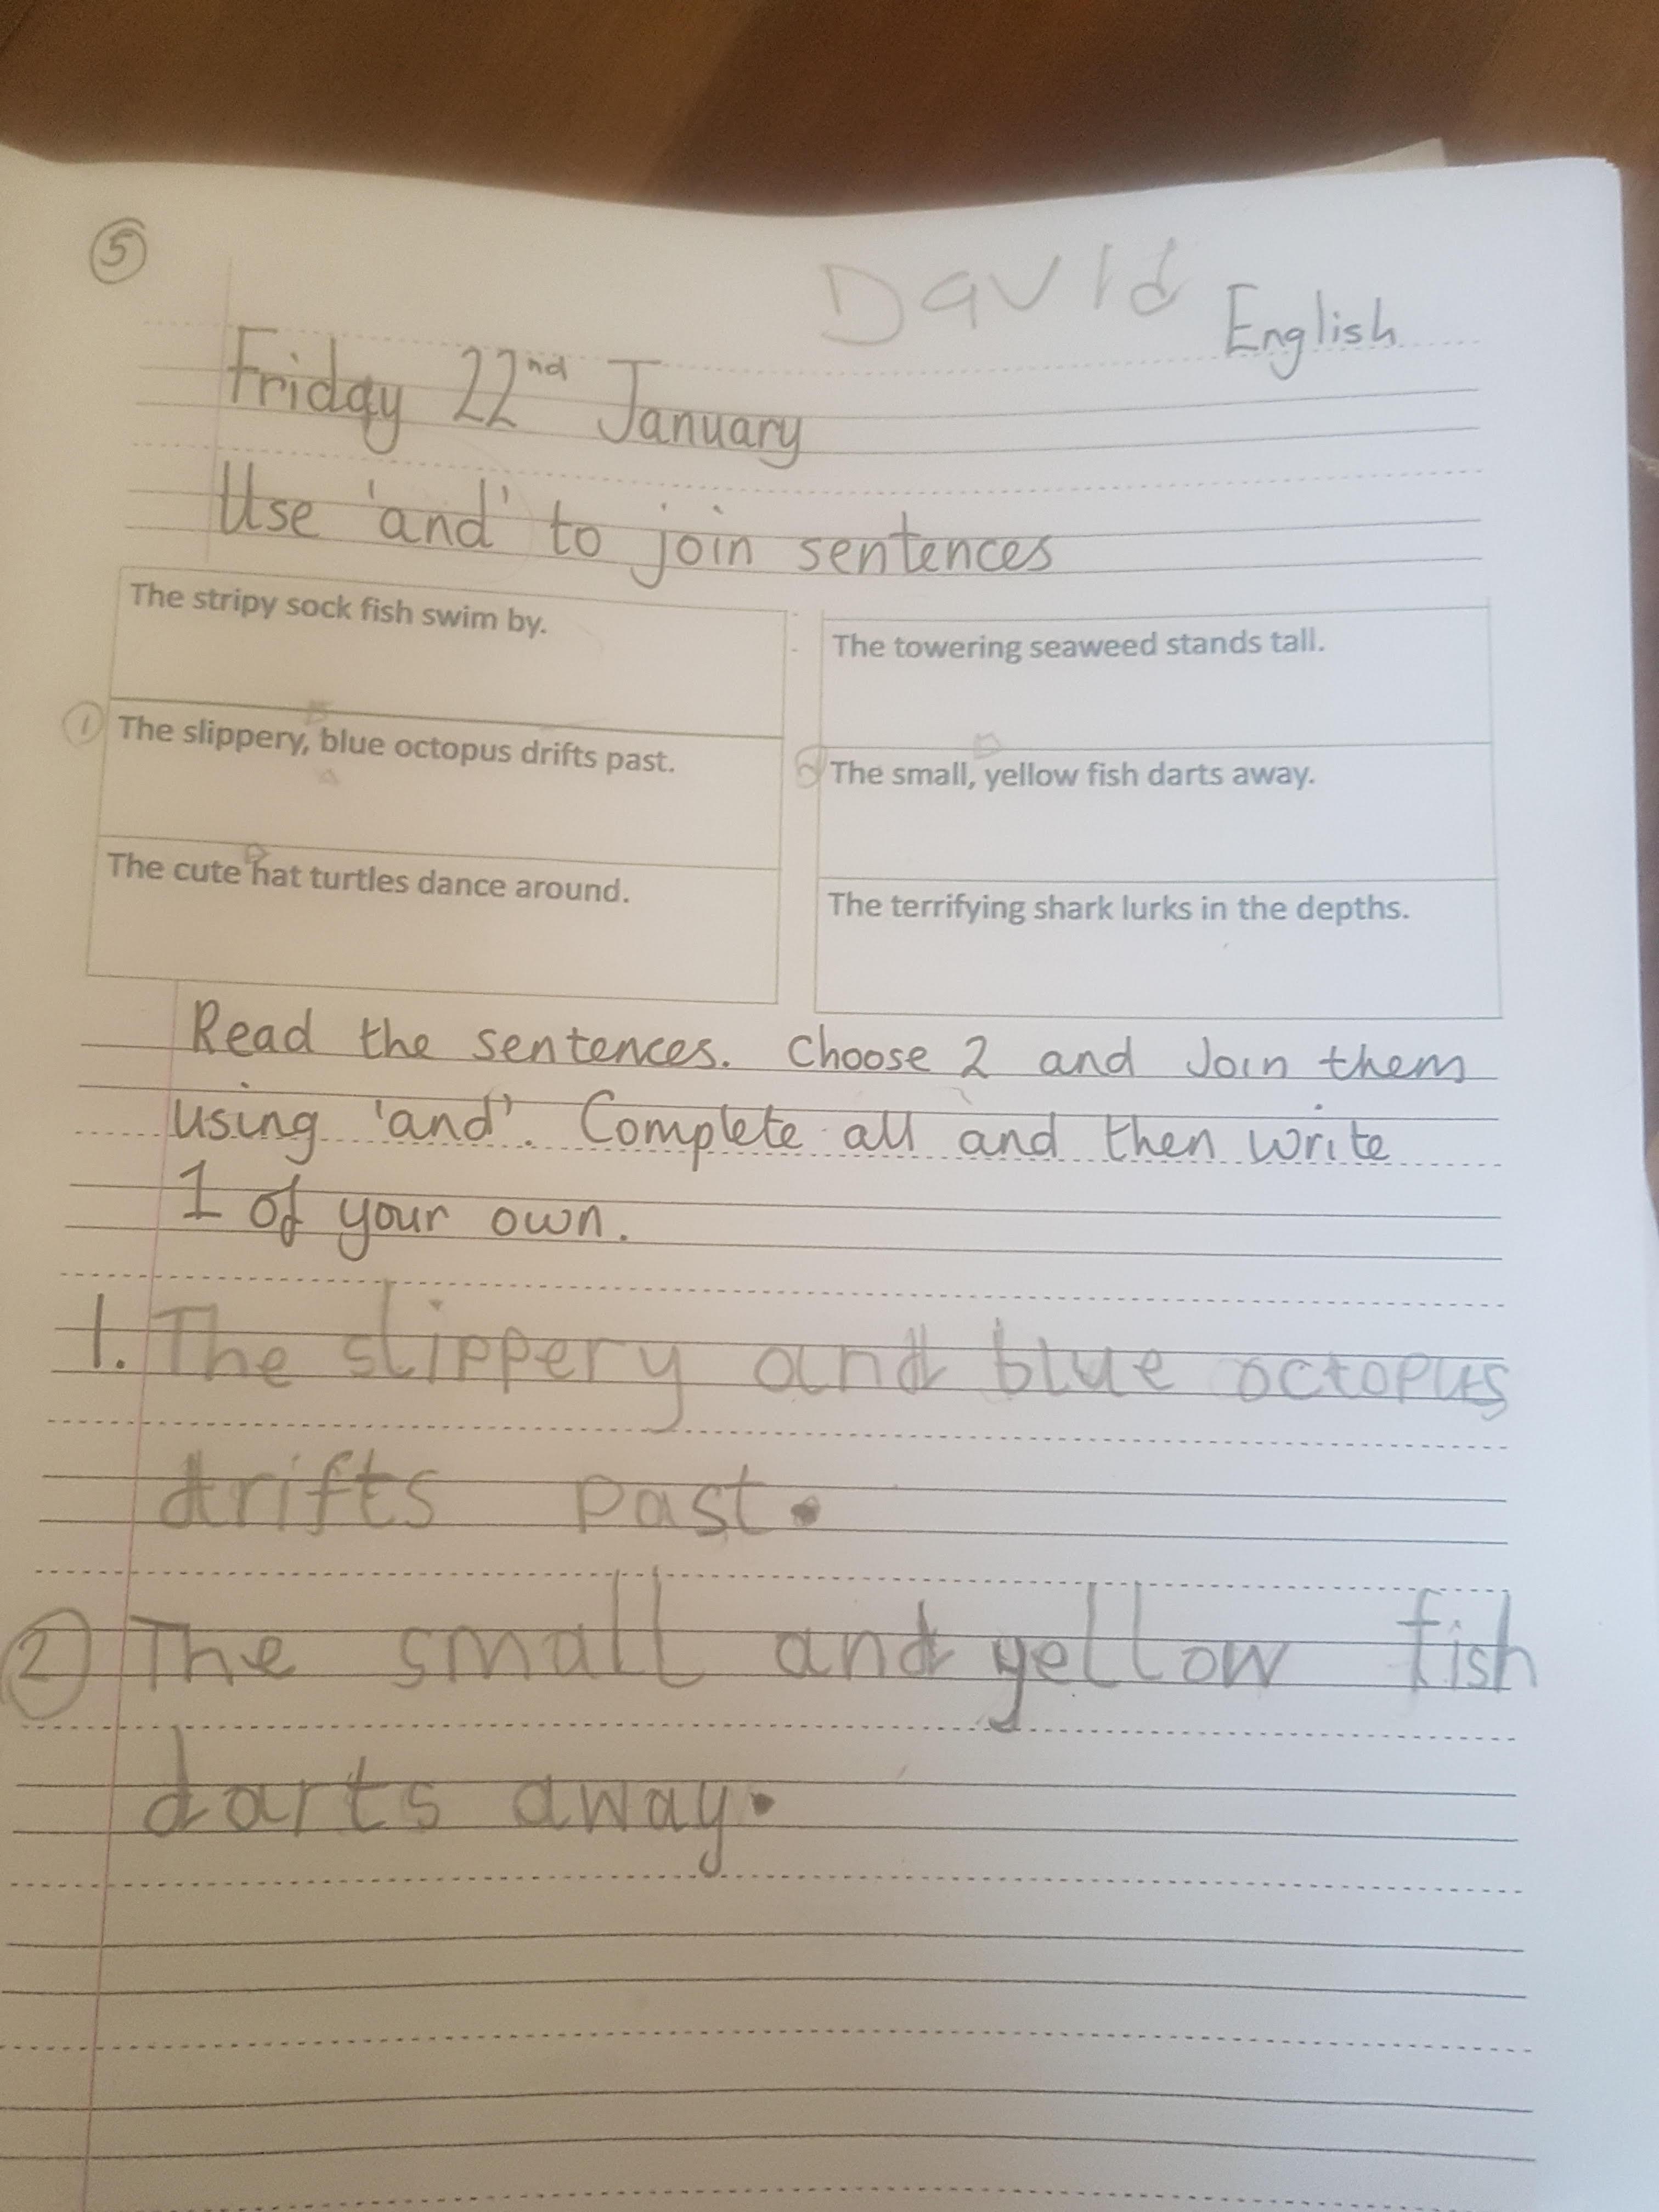 5
David
English
Friday 22nd January
Use 'and' to join sentences
The stripy sock fish swim by.
The towering seaweed stands tall.
1 The slippery, blue octopus drifts past.
2 The small, yellow fish darts away.
The cute hat turtles dance around.
The terrifying shark lurks in the depths.
Read the sentences. Choose 2 and Join them
using 'and'. Complete all and then write
1 of your own.
1. The slippery and blue octopus
drifts past.
2 The small and yellow fish
darts away.